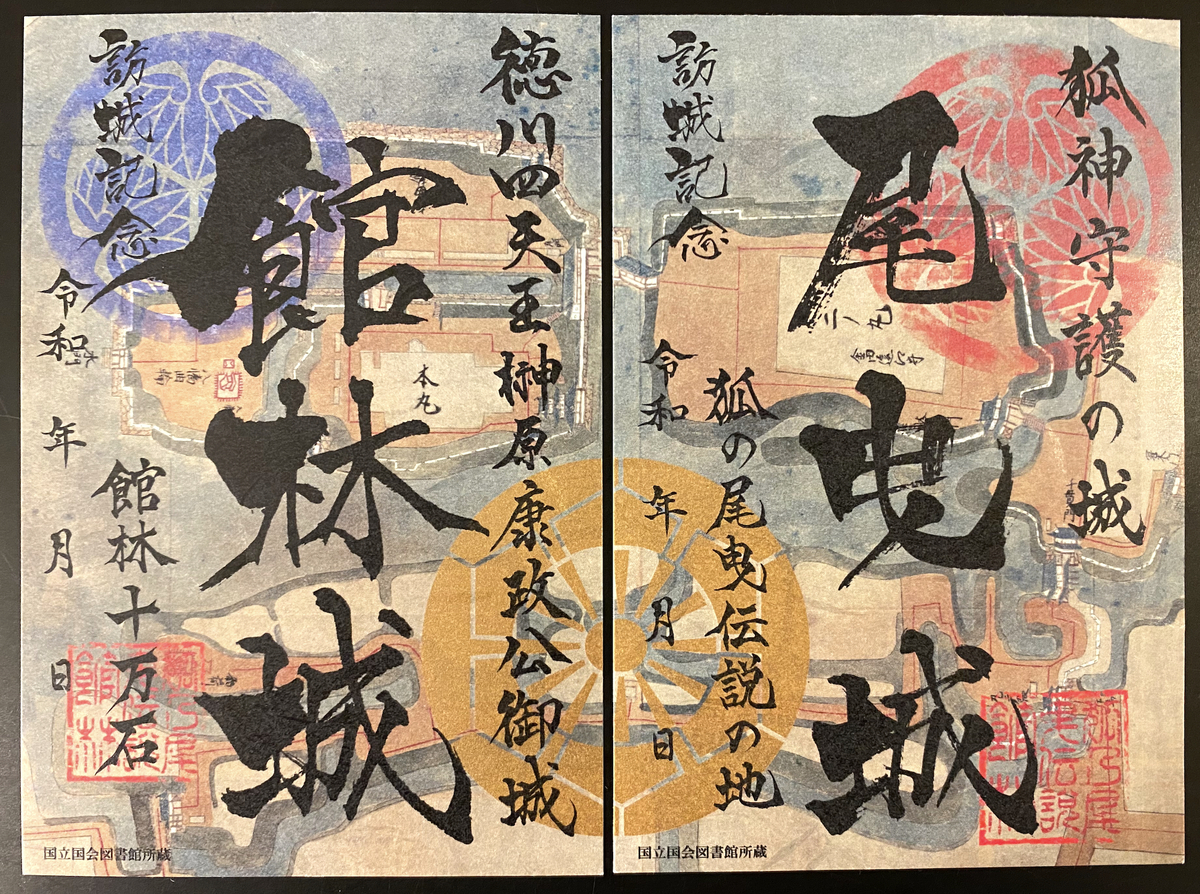 狐神守護の城
尾曳城
狐の尾曳伝説の地
訪城記念
令和 年 月 日
二ノ丸
国立国会図書館所蔵
徳川四天王榊原康政公御城
館林城
館林十万石
訪城記念
令和 年 月 日
本丸
国立国会図書館所蔵